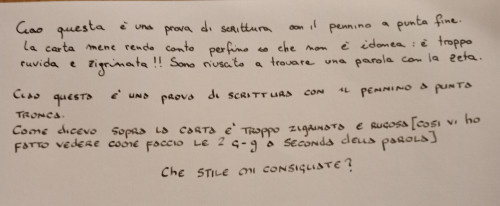 Ciao questa è una prova di scrittura con il pennino a punta fine.
la carta mene rendo conto perfino io che non è idonea: è troppo
ruvida e zigrinata!! Sono riuscito a trovare una parola con la zeta.
CIAO QUESTA E' UNA PROVA DI SCRITTURA CON IL PENNINO A PUNTA
TRONCA.
COME DICEVO SOPRA LA CARTA E' TROPPO ZIGRINATA E RUGOSA [COSI VI HO
FATTO VEDERE COME FACCIO LE 2 G-g A SECONDA DELLA PAROLA]
CHE STILE MI CONSIGLIATE?